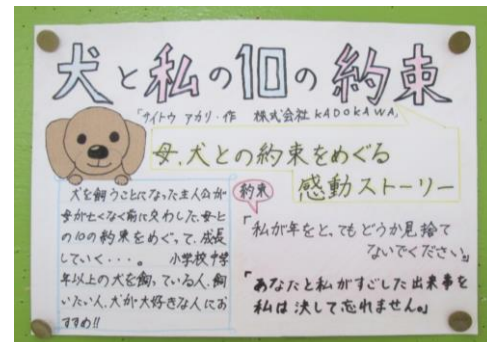 犬と私の10の約束
「サイトウ アカリ・作 株式会社KADOKAWA」
母、犬との約束をめぐる
感動ストーリー
犬を飼うことになった主人公が
母が亡くなく前に交わした、母と
の10の約束をめぐって、成長
していく・・・。 小学校中学
年以上の犬を飼っている人、飼
いたい人、犬が大好きな人にお
すすめ!!
約束
「私が年をとってもどうか見捨て
ないでください。」
「あなたと私がすごした出来事を
私は決して忘れません。」